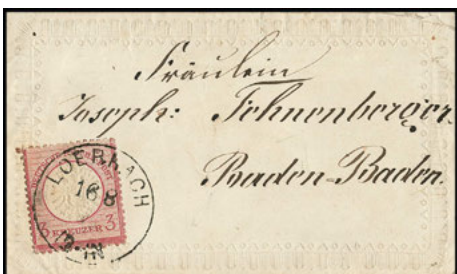 Fräulein
Joseph: Schnenberger
Baden-Baden.
LOERRACH
16 8
3 KREUZER 3